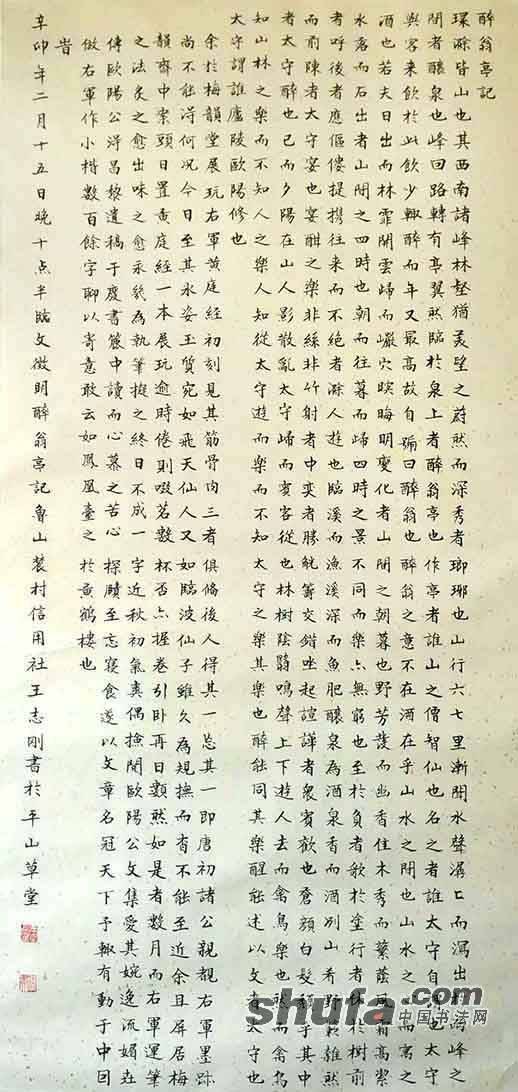 醉翁亭記
環滁皆山也其西南諸峰林壑猶美望之蔚然而深秀者瑯琊也山行六七里漸聞水聲潺ミ而瀉出於兩峰之
間者釀泉也峰回路轉有亭翼然臨於泉上者醉翁亭也作亭者誰山之僧智仙也名之者誰太守自謂也太守
與客來飲於此飲少輒醉而年又最高故自號曰醉翁也醉翁之意不在酒在乎山水之間也山水之樂得之心而寓之
酒也若夫日出而林霏開雲歸而巖穴暝晦明變化者山間之朝暮也野芳發而幽香佳木秀而繁蔭風霜高潔
水落而石出者山間之四時也朝而往暮而歸四時之景不同而樂亦無窮也至於負者歌於塗行者休於樹前
者呼後者應傴僂提攜往來而不絕者滁人遊也臨溪而漁溪深而魚肥釀泉為酒泉香而酒冽山肴野蔌雜然
而前陳者太守宴也宴酣之樂非絲非竹射者中奕者勝觥籌交錯坐起諠譁者衆賓歡也蒼顏白髮頹乎其中
者太守醉也已而夕陽在山人影散亂太守歸而賓客從也林樹陰翳鳴聲上下遊人去而禽鳥樂也然而禽鳥
知山林之樂而不知人之樂人知從太守遊而樂而不知太守之樂其樂也醉能同其樂醒能述以文者太守也
太守謂誰廬陵歐陽修也
余於梅韻堂展玩右軍黄庭經初刻見其筋骨肉三者俱備後人得其一忘其一即唐初諸公親覩右軍墨跡
尚不能得何况今日至其氷姿玉質宛如飛天仙人又如臨波仙子雖久為規撫而杳不能至近余且屏居梅
韻齋中案頭日置黄庭經一本展玩逾時倦則啜茗數杯否亦握卷引卧再日然如是者數月而右軍運筆
之法炙之愈出味之愈永為執筆擬之終日不成一字近秋初氣爽偶撿閱歐陽公文集愛其婉逸流媚
傳歐陽公得昌黎遺稿于廢書簏中讀而心慕之苦心探賾至忘寢食遂以文章名冠天下予輒有動于中因
倣右軍作小楷數百餘字聊以寄意敢云如鳳凰臺之於黄鶴樓也
旹
辛卯年二月十五日晚十点半臨文徵明醉翁亭記魯山村信用社王志剛書於平山草堂
shufa.com
中国书法网